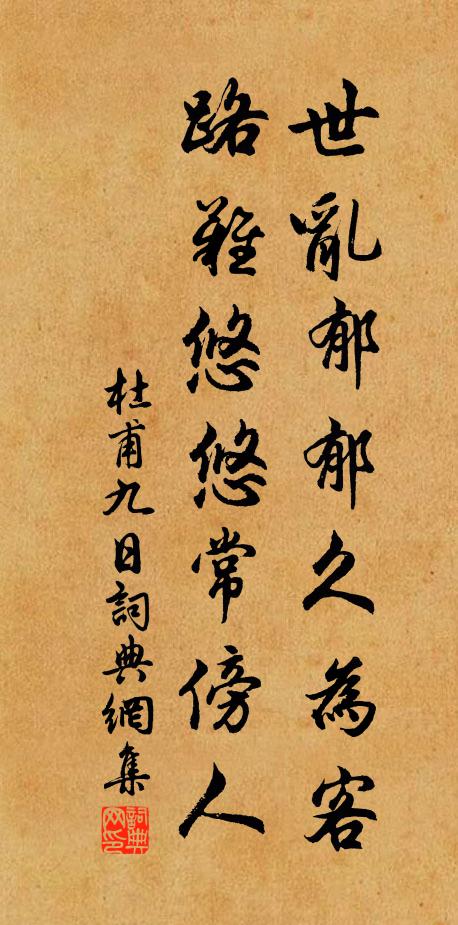 世亂郁郁久為客
路難悠悠常傍人
杜甫九日詞典網集
詞典网印